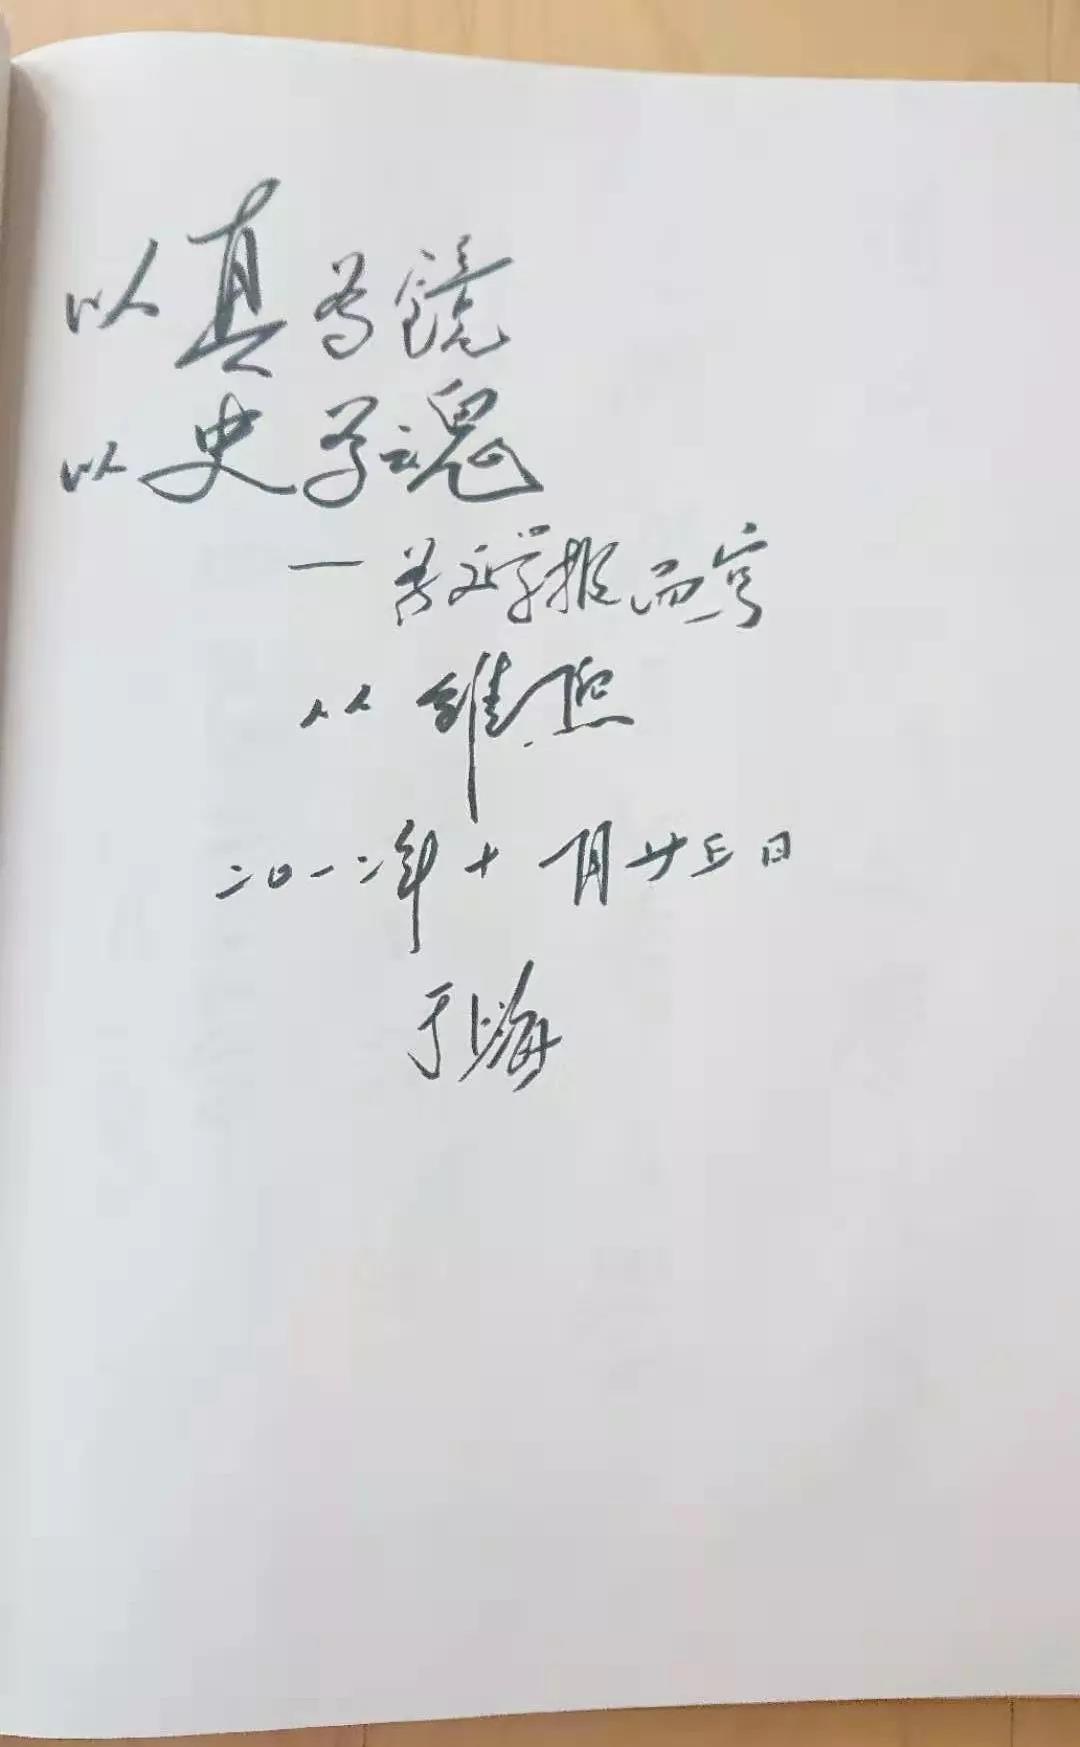 以真为镜
以史为魂
—为文学报而写
从维熙
二〇一二年十月廿三日
于上海